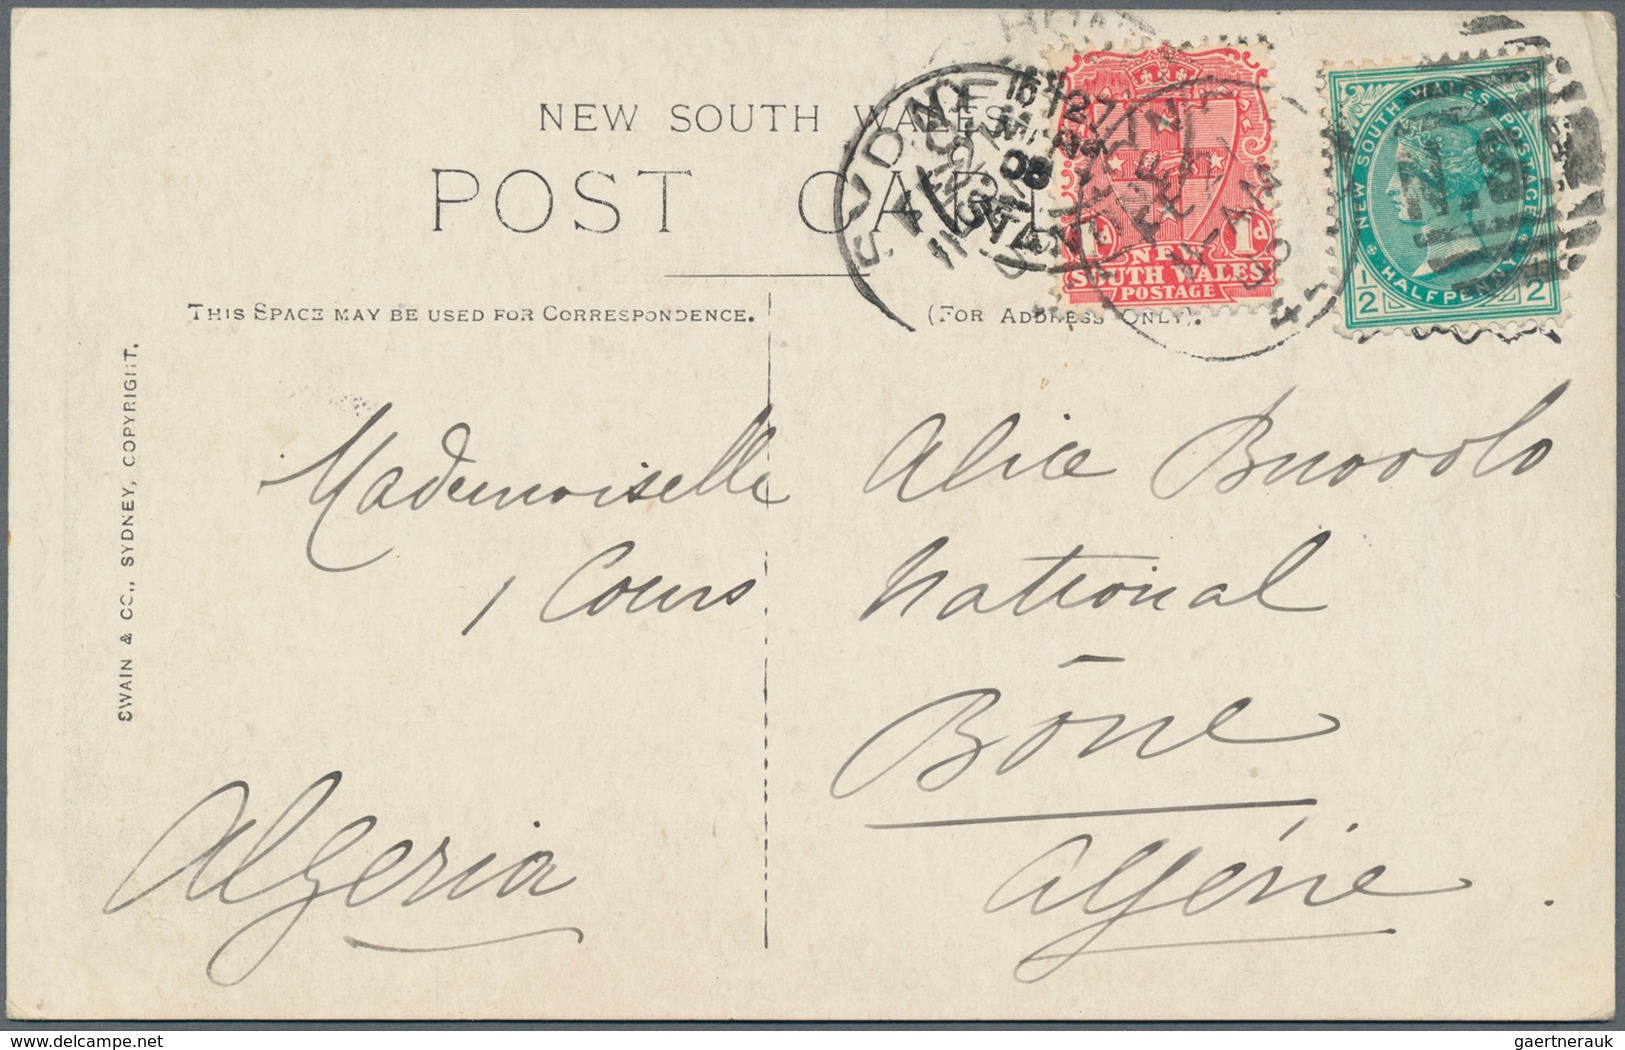 NEW SOUTH WALES
POST CARD
THIS SPACE MAY BE USED FOR CORRESPONDENCE.
(FOR ADDRESS ONLY).
SWAIN & CO., SYDNEY, COPYRIGHT.
1d
NEW
SOUTH WALES
POSTAGE
NEW SOUTH WALES POSTAGE
HALFPENNY
1/2
1/2
N.S.
SYDNEY
Mademoiselle Alice
1 Cours National
Bône
Algeria Algérie.
delcampe.net
gaertnerauk